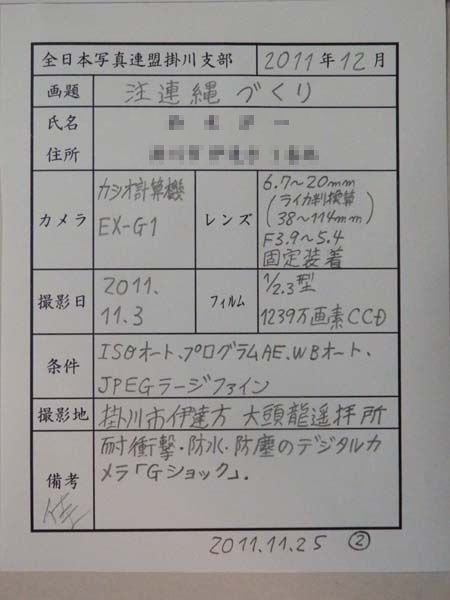 全日本写真連盟掛川支部 2011年12月
画題 注連縄づくり
氏名
住所
カメラ カシオ計算機 EX-G1 レンズ 6.7〜20mm
(ライカ判換算
38〜114mm)
F3.9〜5.4
固定装着
撮影日 2011.
11.3
フィルム 1/2.3型
1239万画素CCD
条件 ISOオート、プログラムAE、WBオート、
JPEGラージファイン
撮影地 掛川市伊達方 大頭龍遥拝所
備考 耐衝撃・防水・防塵のデジタルカ
メラ「Gショック」.
佳
2011.11.25 ②